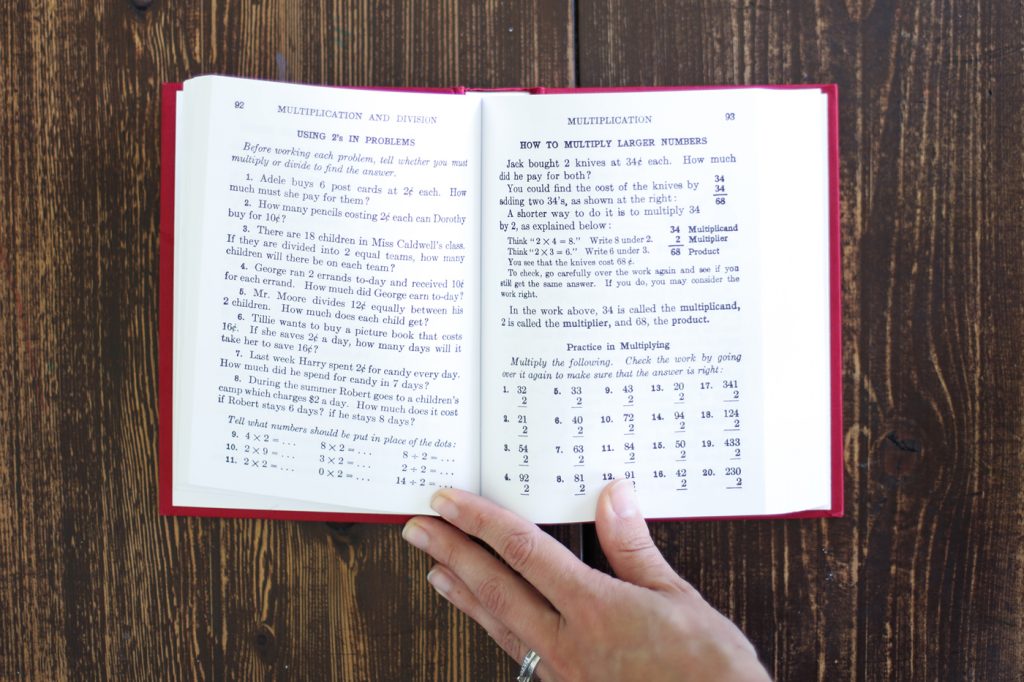 92
MULTIPLICATION AND DIVISION
USING 2's IN PROBLEMS
Before working each problem, tell whether you must
multiply or divide to find the answer.
1. Adele buys 6 post cards at 2¢ each. How
much must she pay for them?
2. How many pencils costing 2¢ each can Dorothy
buy for 10¢?
3. There are 18 children in Miss Caldwell's class.
If they are divided into 2 equal teams, how many
children will there be on each team?
4. George ran 2 errands to-day and received 10¢
for each errand. How much did George earn to-day?
5. Mr. Moore divides 12¢ equally between his
2 children. How much does each child get?
6. Tillie wants to buy a picture book that costs
16¢. If she saves 2¢ a day, how many days will it
take her to save 16¢?
7. Last week Harry spent 2¢ for candy every day.
How much did he spend for candy in 7 days?
8. During the summer Robert goes to a children's
camp which charges $2 a day. How much does it cost
if Robert stays 6 days? if he stays 8 days?
Tell what numbers should be put in place of the dots:
9. 4 × 2 = ... 8 × 2 = ... 8 ÷ 2 = ...
10. 2 × 9 = ... 3 × 2 = ... 2 ÷ 2 = ...
11. 2 × 2 = ... 0 × 2 = ... 14 ÷ 2 = ...
MULTIPLICATION 93
HOW TO MULTIPLY LARGER NUMBERS
Jack bought 2 knives at 34¢ each. How much
did he pay for both?
You could find the cost of the knives by
adding two 34's, as shown at the right:
34
34
68
A shorter way to do it is to multiply 34
by 2, as explained below:
Think "2 × 4 = 8." Write 8 under 2.
Think "2 × 3 = 6." Write 6 under 3.
34 Multiplicand
2 Multiplier
68 Product
You see that the knives cost 68¢.
To check, go carefully over the work again and see if you
still get the same answer. If you do, you may consider the
work right.
In the work above, 34 is called the multiplicand,
2 is called the multiplier, and 68, the product.
Practice in Multiplying
Multiply the following. Check the work by going
over it again to make sure that the answer is right:
1. 32 5. 33 9. 43 13. 20 17. 341
2 2 2 2 2
2. 21 6. 40 10. 72 14. 94 18. 124
2 2 2 2 2
3. 54 7. 63 11. 84 15. 50 19. 433
2 2 2 2 2
4. 92 8. 81 12. 91 16. 42 20. 230
2 2 2 2 2